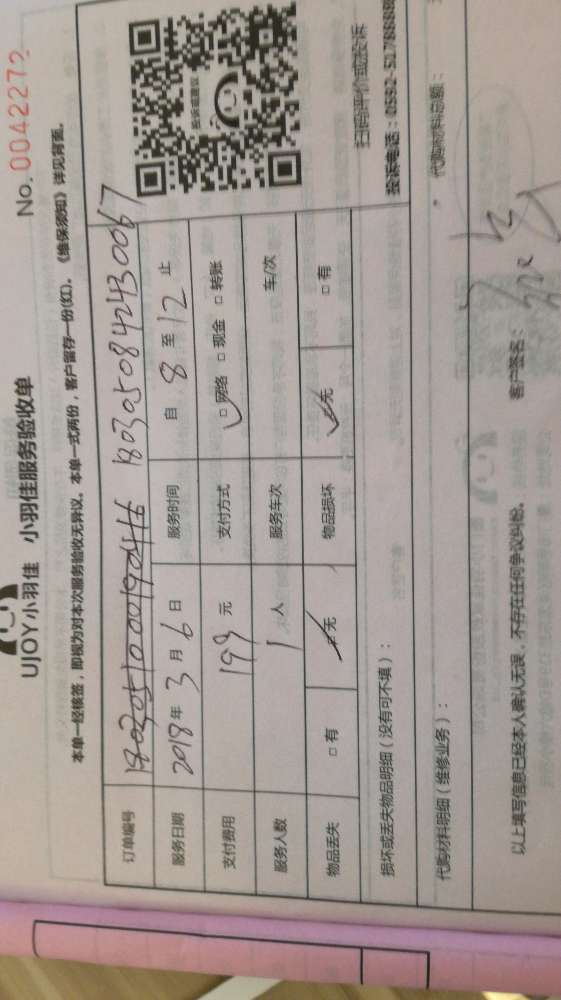 UJOY小羽佳 小羽佳服务验收单
No. 0042272
本单一经核签,即视为对本次服务验收无异议。本单一式两份,客户留存一份(红)。《维保须知》详见背面。
订单编号 180205100190416 1803050842430067
服务日期 2018年3月6日 服务时间 自 8 至 12 止
支付费用 199 元 支付方式 □网络 □现金 □转账
服务人数 1 人 服务车次 车/次
物品丢失 □有 □无 物品损坏 □无 □有
损坏或丢失物品明细(没有可不填):
投诉或建议
扫码评价或投诉
投诉电话:0592-5178888
代购材料明细(维修业务): 代购材料总额:
以上填写信息已经本人确认无误,不存在任何争议纠纷。 客户签名: